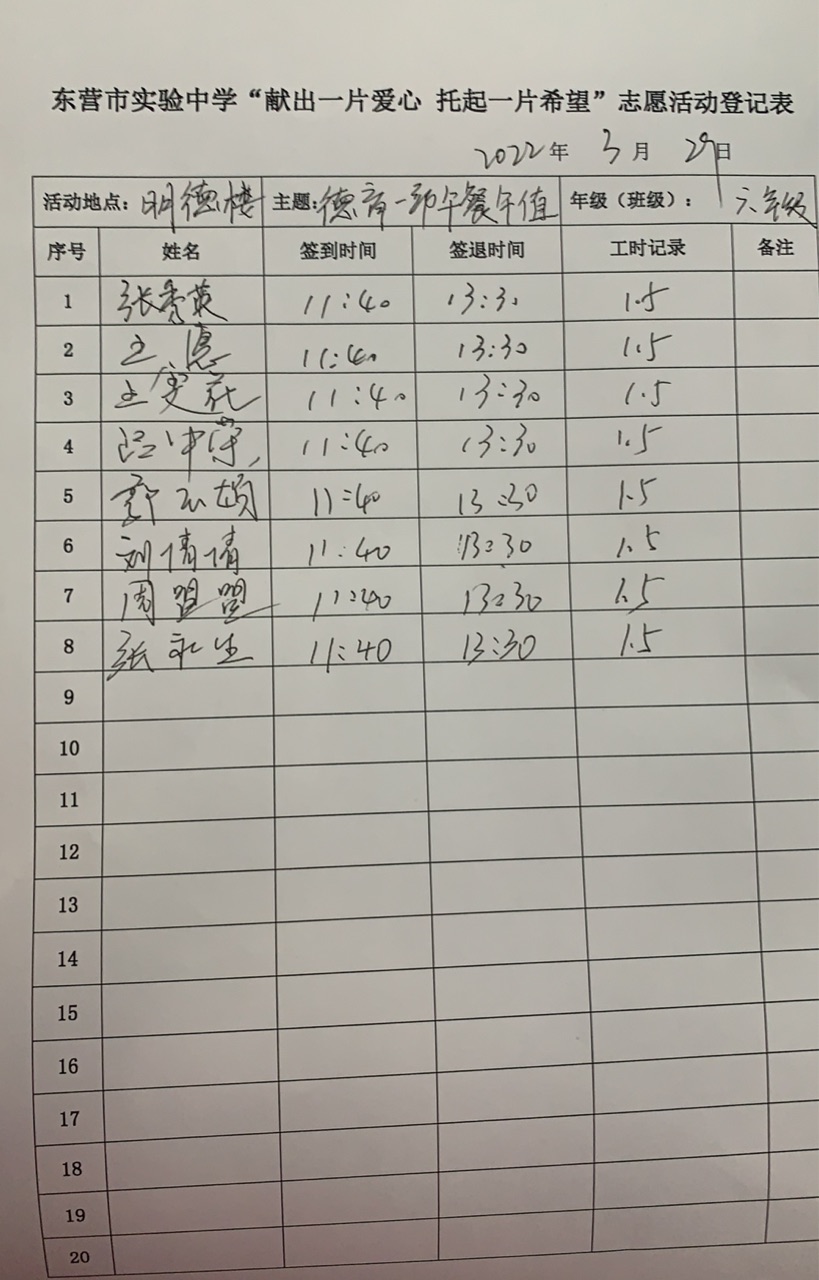 东营市实验中学“献出一片爱心 托起一片希望”志愿活动登记表
2022年 3月 29日
活动地点：明德楼 主题：德育一部午餐午值 年级（班级）：六年级
序号 姓名 签到时间 签退时间 工时记录 备注
1 张秀英 11:40 13:30 1.5
2 王 11:40 13:30 1.5
3 王雯花 11:40 13:30 1.5
4 吕中 11:40 13:30 1.5
5 11:40 13:30 1.5
6 刘倩倩 11:40 13:30 1.5
7 周盟盟 11:40 13:30 1.5
8 张永生 11:40 13:30 1.5
9
10
11
12
13
14
15
16
17
18
19
20